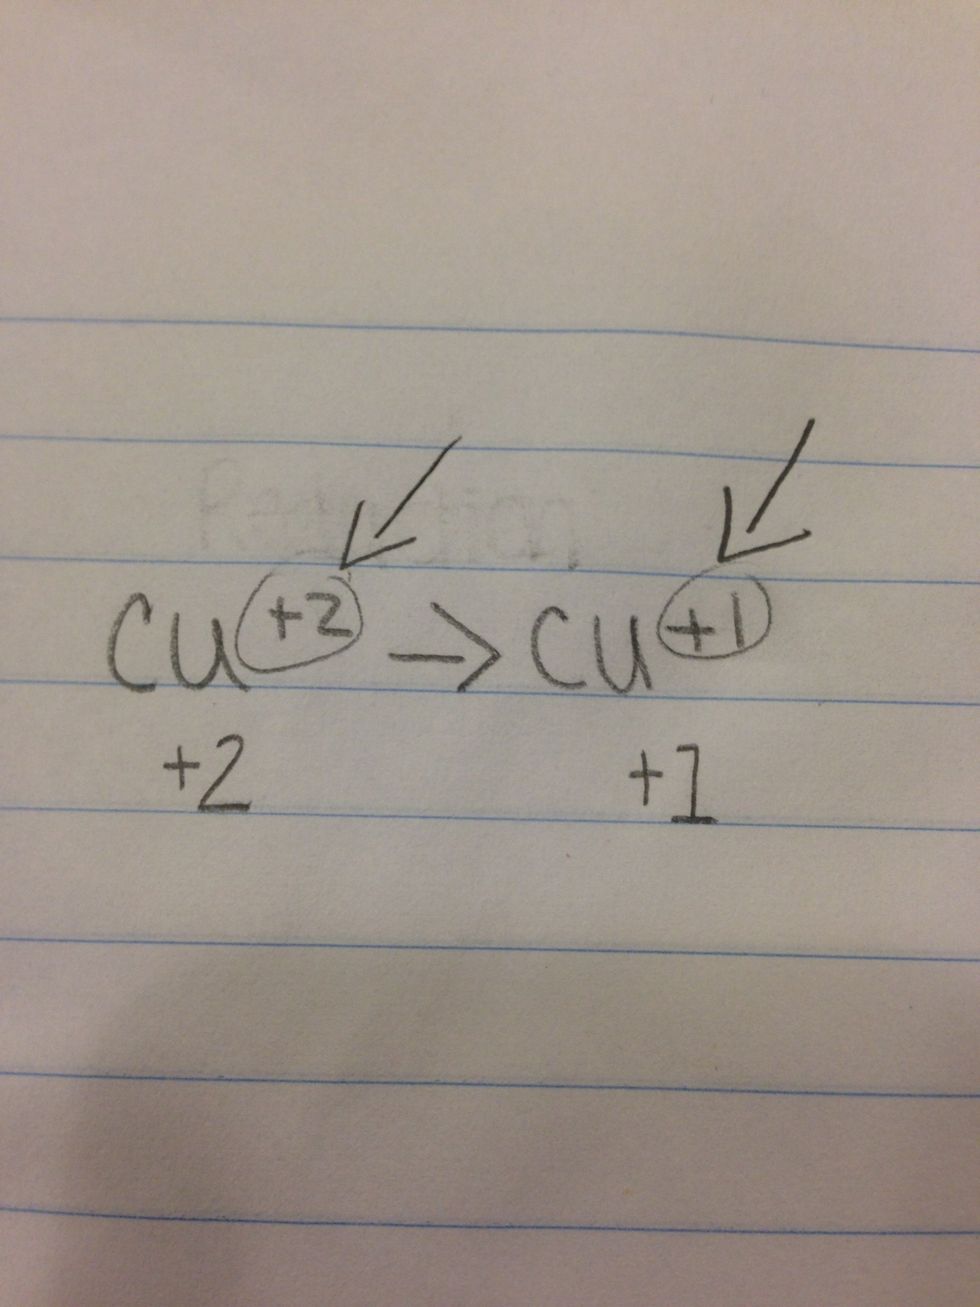 Reduction
Cu+2 -> Cu+1
+2 +1